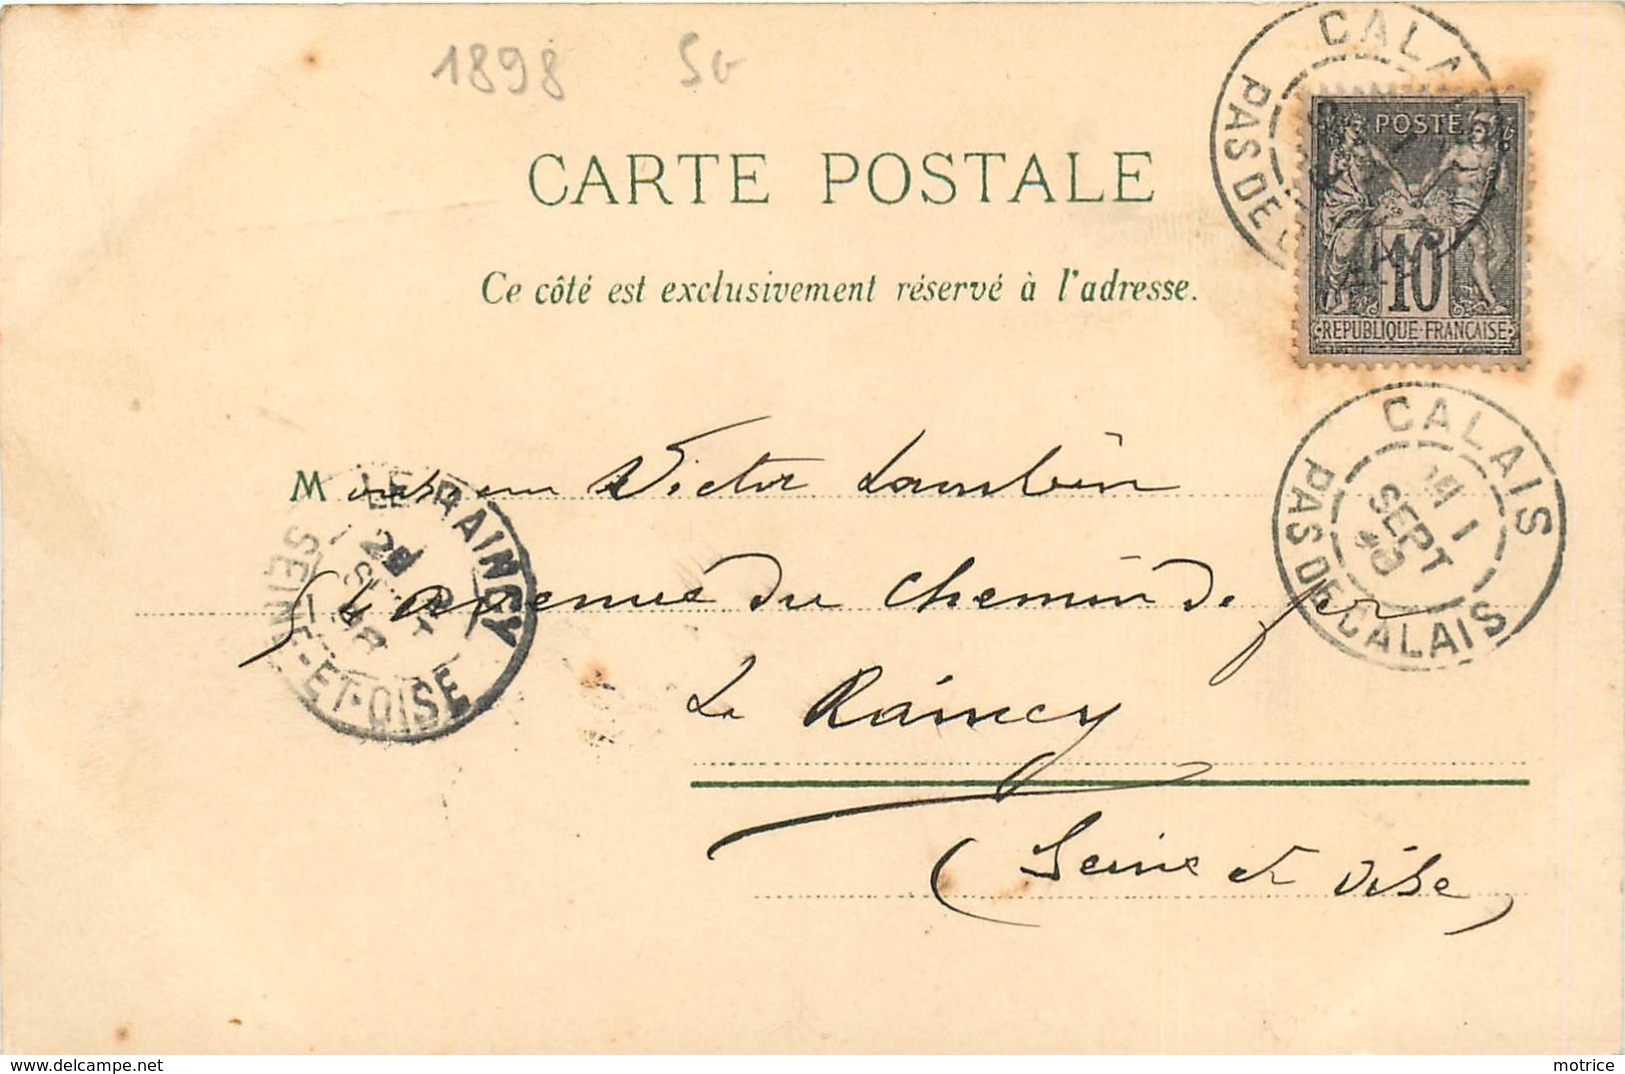 1898
CALA
PAS DE
POSTE
10
REPUBLIQUE FRANCAISE
CARTE POSTALE
Ce côté est exclusivement réservé à l'adresse.
CALAIS
SEPT
PAS DE CALAIS
Monsieur Victor Lambin
LE RAINCY
98
SEINE-ET-OISE
avenue du Chemin de fer
Le Raincy
(Seine et Oise)
delcampe.net
motrice